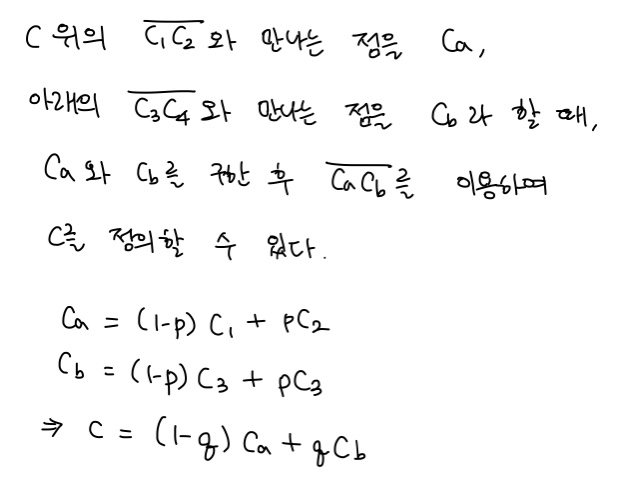 C 위의 C₁C₂ 와 만나는 점을 Ca,
아래의 C₃C₄ 와 만나는 점을 Cb 라 할 때,
Ca 와 Cb를 구한 후 CaCb를 이용하여
C를 정의할 수 있다.
Ca = (1-p) C₁ + pC₂
Cb = (1-p) C₃ + pC₃
⇒ C = (1-q) Ca + qCb